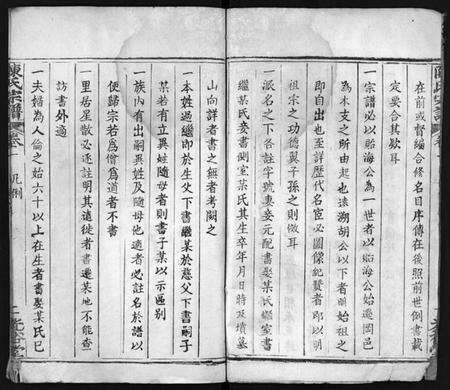 在前或督編合修名目序傳在後照前世倒書載
定要合其欵耳
一宗譜必以臨海公為一世者以臨海公始遷岡邑
為本支之所由起也遠溯胡公以下者明始祖之
即自出也至詳歷代名宦必圖像紀贊者即以明
祖宗之功德冀子孫之則傚耳
一名派之下各註字號妻妾元配書娶某氏繼室書
繼某氏妾書側室某氏其生卒年月日時及墳墓
山向詳者書之無者考闕之
一本姓過繼即於生父下書繼某於慈父下書嗣子
某若有立異姓隨母者則書子某以示區別
一族內有出嗣異姓及隨母他適者必註名於譜以
便歸宗若為僧為道者不書
一里居星散必逐註明其遠徙者書遷某地不能查
訪書外適
一夫婦為人倫之始六十以上在生者書娶某氏已
陳氏宗譜
卷一
凡例
二